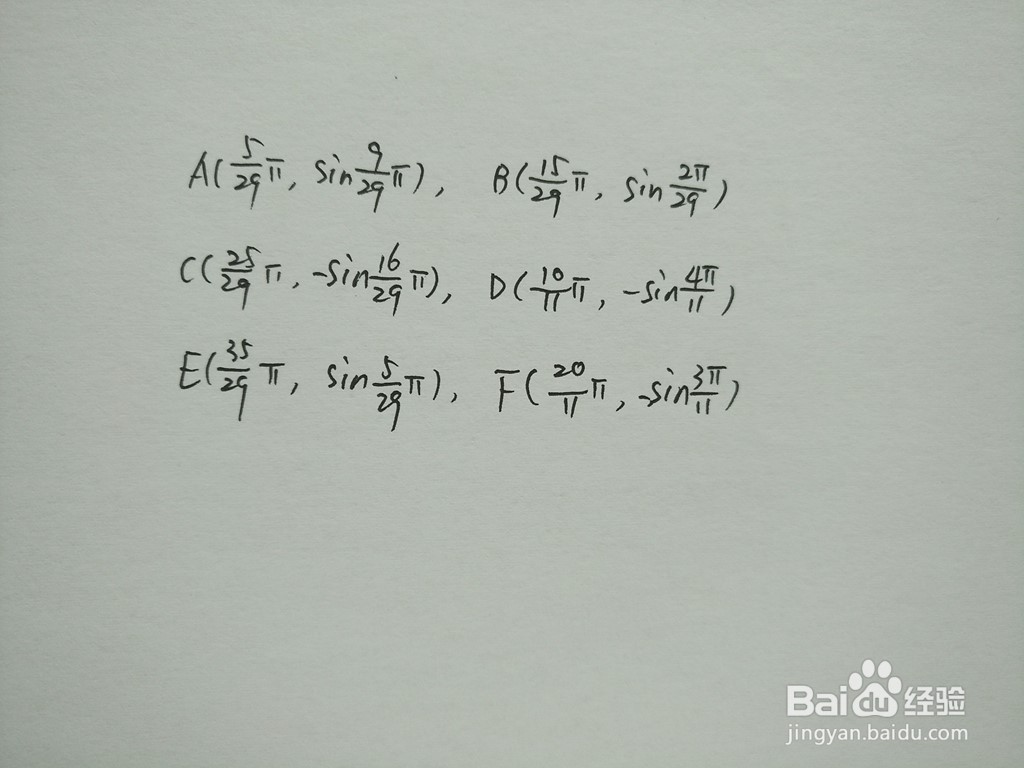 A(5/29 π, sin 9/29 π), B(15/29 π, sin 2π/29)
C(25/29 π, -sin 16/29 π), D(10/11 π, -sin 4π/11)
E(35/29 π, sin 5/29 π), F(20/11 π, -sin 3π/11)
Bai du 经验
jingyan.baidu.com